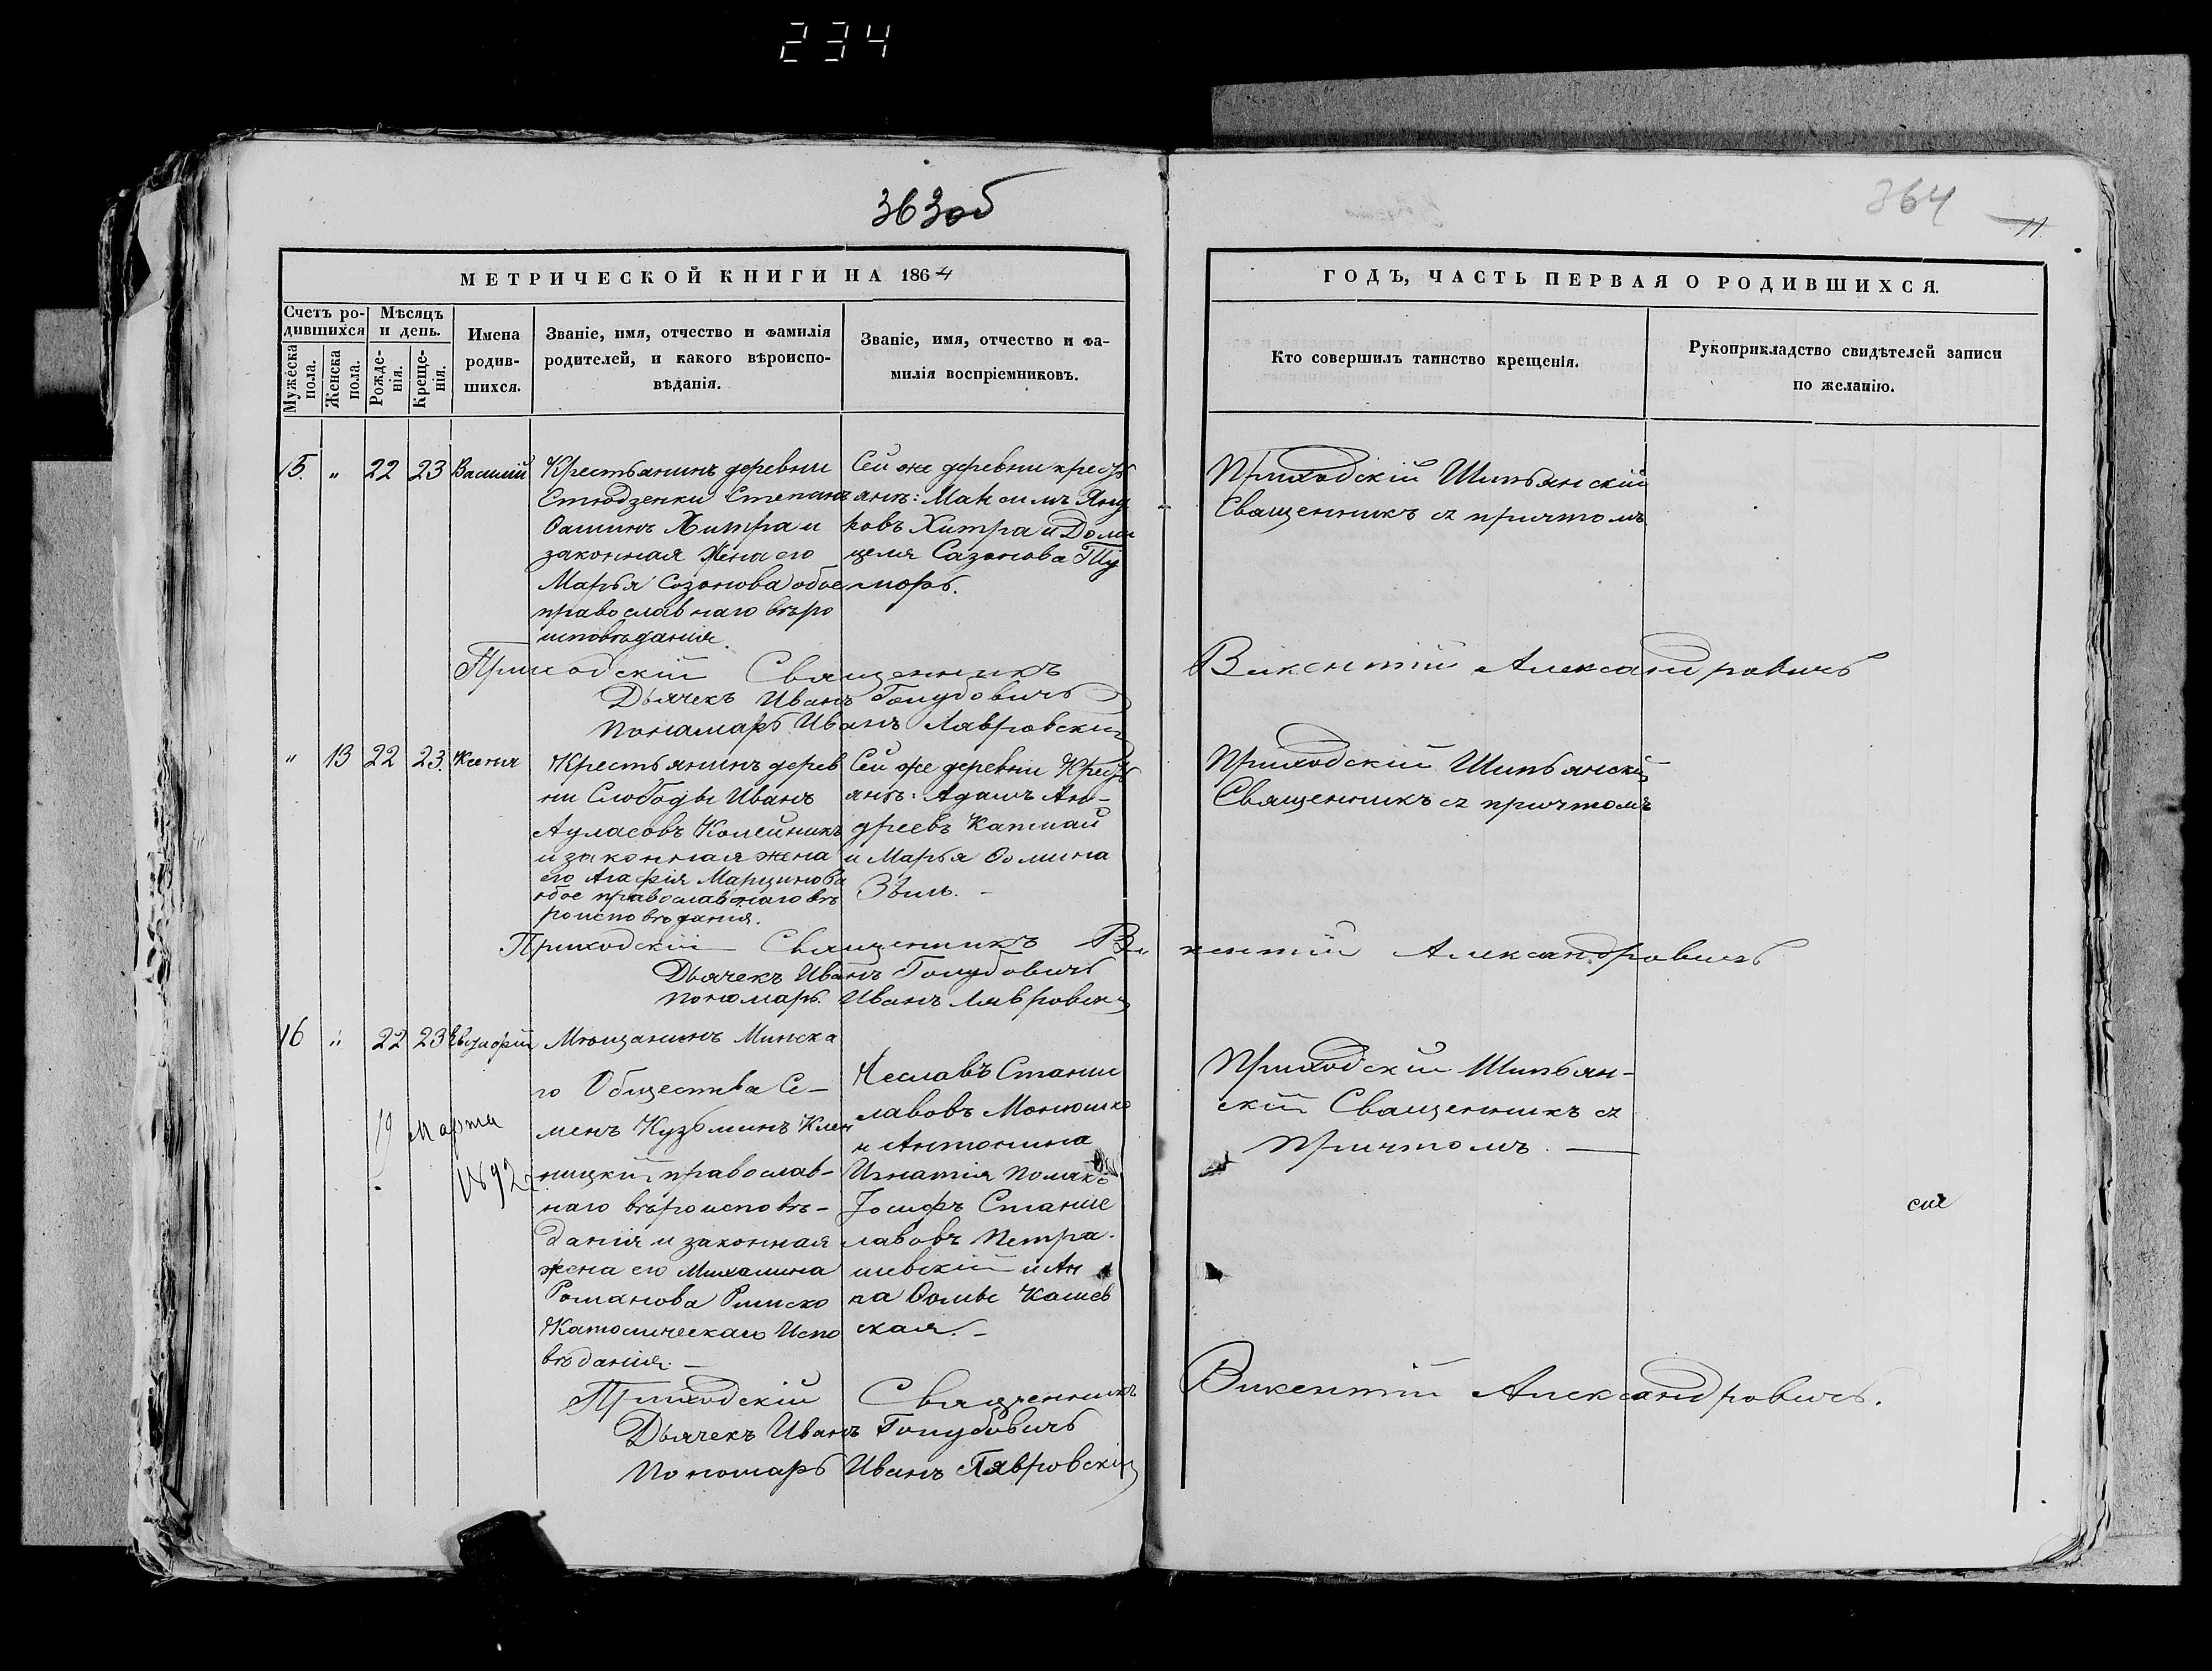 234
363об
364
11
МЕТРИЧЕСКОЙ КНИГИ НА 1864
ГОДЪ, ЧАСТЬ ПЕРВАЯ О РОДИВШИХСЯ.
Счетъ ро-
дившихся
Мужеска
пола.
Женска
пола.
Мѣсяцъ
и день.
Рожде-
нія.
Креще-
нія.
Имена
родив-
шихся.
Званіе, имя, отчество и фамилія
родителей, и какого вѣроиспо-
вѣданія.
Званіе, имя, отчество и фа-
милія воспріемниковъ.
Кто совершилъ таинство крещенія.
Рукоприкладство свидѣтелей записи
по желанію.
15. „ 22 23 Василій
Крестьянинъ деревни
Стюдзенки Степанъ
Ѳоминъ Хитра и
законная жена его
Марья Созонова обое
православнаго вѣро
исповѣданія.
Сей же деревни крест
янѣ: Максимъ
ровъ Хитра и Доми
целя Сазонова
Приходскій Шипьянскій
Священникъ съ причтомъ
Приходскій Священникъ Викентій Александровичъ
Дьячекъ Иванъ Голубовичъ
Пономарь Иванъ Лавровскій
„ 13 22 23. Ксенія
Крестьянинъ дерев
ни Слободы Иванъ
и законная жена
его Агафія Марцинова
обое православнаго вѣ
роисповѣданія.
Сей же деревни Крест
янѣ: Адамъ Ан-
дреевъ Катпай
и Марья Ѳомина
Приходскій Шипьянскій
Священникъ съ причтомъ
Приходскій Священникъ Викентій Александровичъ
Дьячекъ Иванъ Голубовичъ
Пономарь Иванъ Лавровскій
16 „ 22 23
19 Марта
1892
Мѣщанинъ Минска
го Общества Се-
менъ Кузьминъ Клен
ницкій православ-
наго вѣроисповѣ-
данія и законная
жена его Михалина
Романова Римско
Католическаго Испо
вѣданія. —
Чеславъ Станис
лавовъ Монюшко
и Антонина
Игнатія Поляко
Іосифъ Станис
лавовъ Петра-
шевскій и Ан
на Ѳомы
ская. —
Приходскій Шипьян-
скій Священникъ съ
Причтомъ. —
Приходскій Священникъ Викентій Александровичъ.
Дьячекъ Иванъ Голубовичъ
Пономарь Иванъ Лавровскій